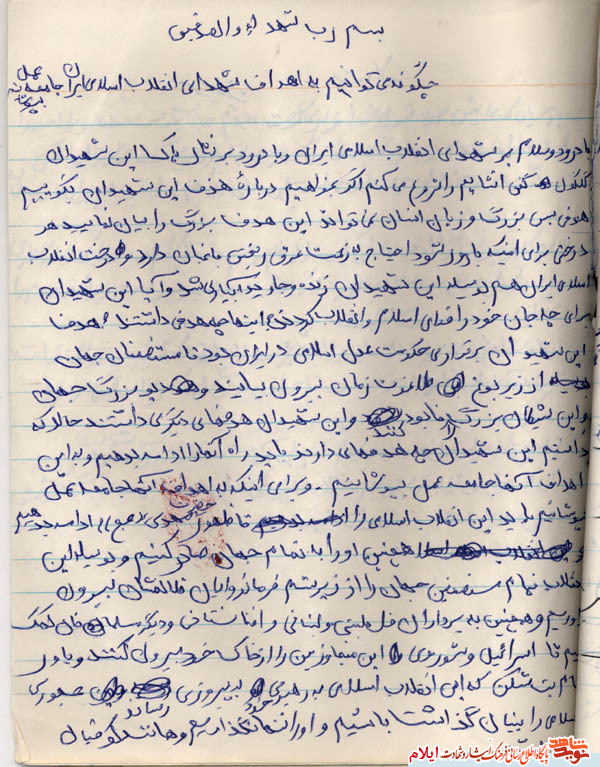 بسم رب شهداء والصدیقین
چگونه می توانیم به اهداف شهدای انقلاب اسلامی ایران جامه عمل بپوشانیم
با درود و سلام بر شهدای انقلاب اسلامی ایران و با درود بر نثار پاک این شهیدان
گلگون کفن انشایم را شروع می کنم اگر بخواهیم درباره هدف این شهیدان بگوییم
هدفی بس بزرگ و زبان انسان نمی تواند این هدف بزرگ را بیان نماید هر
درختی برای اینکه بارور شود احتیاج به زحمت عرق ریختن باغبان دارد و درخت انقلاب
اسلامی ایران هم بوسیله این شهیدان زنده و جاوید آبیاری شد و آیا این شهیدان
برای چه جان خود را فدای اسلام و انقلاب کردند اینها چه هدفی داشتند هدف
این شهیدان برقراری حکومت عدل اسلامی در ایران بود تا مستضعفان جهان
از زیر یوغ طاغوت زمان بیرون بیایند و دیو بزرگ جهان
و این شیطان بزرگ را نابود کنند و این شهیدان هدفهای دیگری داشتند حالا که
دانستیم این شهیدان چه هدفهای دارند باید راه آنها را ادامه بدهیم و به این
اهداف آنها جامه عمل بپوشانیم . و برای اینکه به اهداف آنها جامه عمل
بپوشانیم باید این انقلاب اسلامی را تا ظهور حضرت مهدی (عج) ادامه بدهیم
همچنین او را به تمام جهان صادر کنیم و بوسیله این
انقلاب تمام مستضعفین جهان را از زیر ستم فرمانروایان ظالمشان بیرون
بیاوریم و همچنین به برادران فلسطینی و لبنانی و افغانستانی و دیگر مسلمانان کمک
کنیم تا اسرائیل و شوروی این متجاوزین را از خاک خود بیرون کنند و باور
امام بت شکن که این انقلاب اسلامی به رهبری خود به پیروزی رساند جمهوری
اسلامی را بنیان گذاشت باشیم و او را تنها نگذاریم و مانند کوفیان
شاهد نوید
پایگاه اطلاع رسانی فرهنگ ایثار و شهادت ایلام